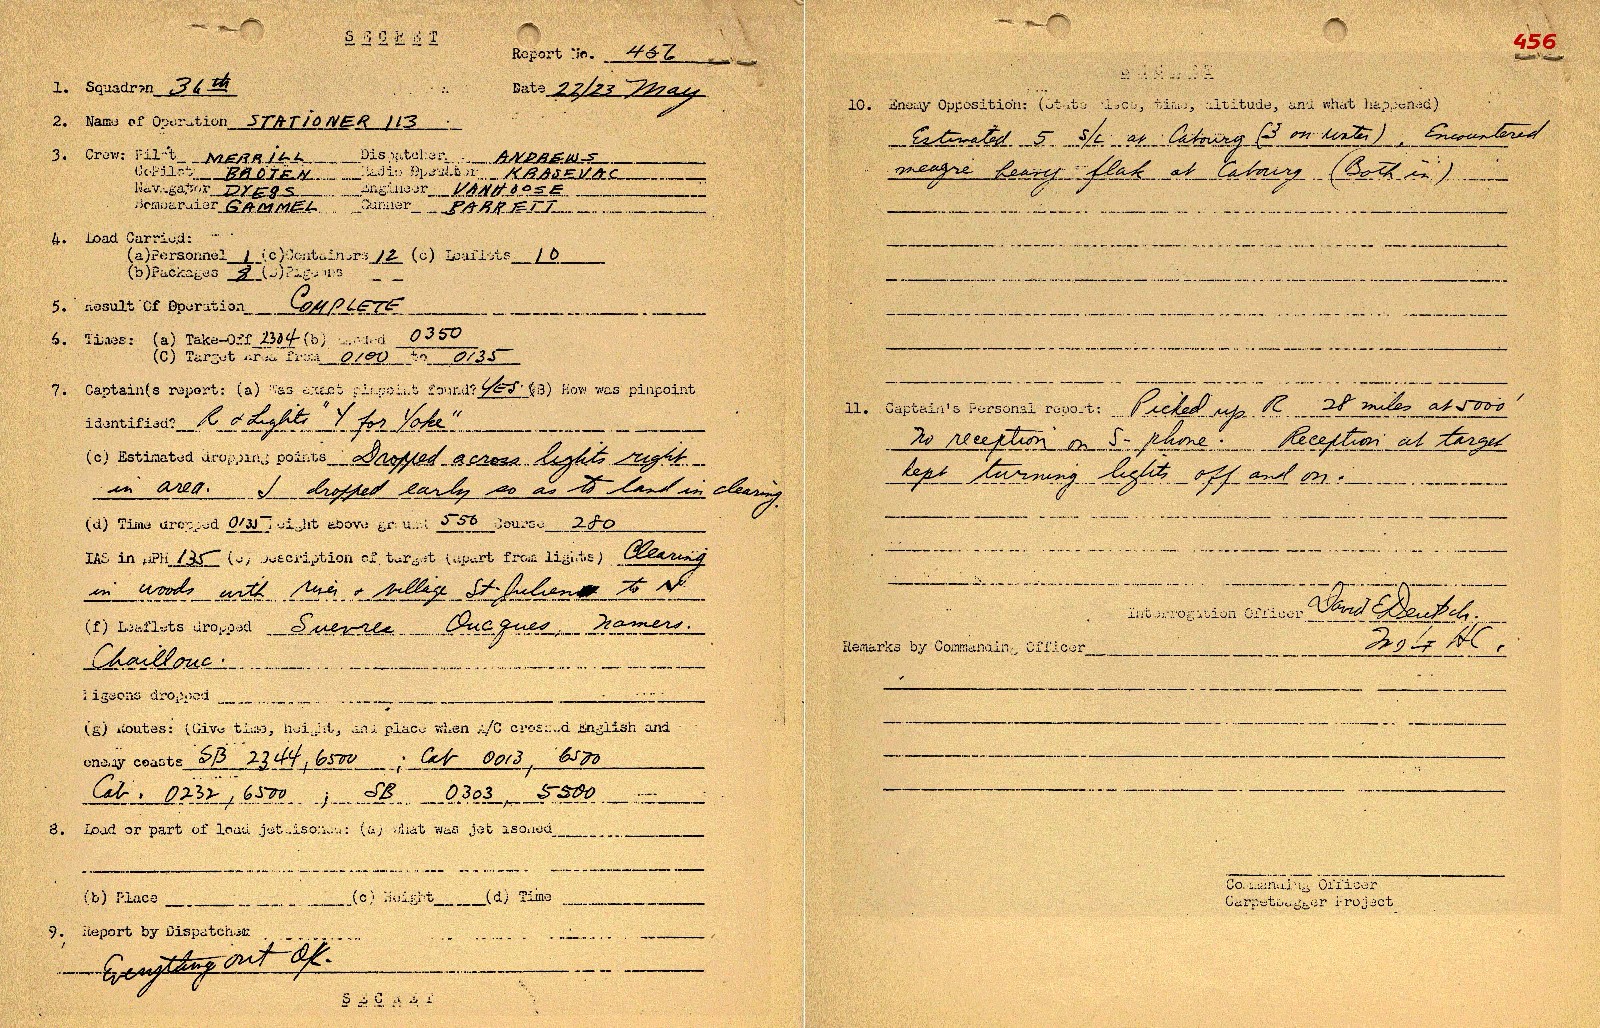 SECRET
Report No. 467
1. Squadron 36th Date 22/23 May
2. Name of Operation STATIONER 113
3. Crew: Pilot MERRILL Dispatcher ANDREWS
CoPilot BROTEN Radio Operator KRASEVAC
Navigator DYERS Engineer VANHOOSE
Bombardier GAMMEL Gunner BARRETT
4. Load Carried:
(a)Personnel 1 (c)Containers 12 (c) Leaflets 10
(b)Packages 8 (b)Pigeons
5. Result Of Operation COMPLETE
6. Times: (a) Take-Off 2304 (b) Landed 0350
(C) Target Area from 0100 to 0135
7. Captain(s report: (a) Was exact pinpoint found? YES (B) How was pinpoint
identified? R & Lights "Y for Yoke"
(c) Estimated dropping points Dropped across lights right
in area. I dropped early so as to land in clearing.
(d) Time dropped 0135 height above ground 550 Course 280
IAS in MPH 135 (e) Description of target (apart from lights) Clearing
in woods with river & village St Julien to N
(f) Leaflets dropped Suevres Oucques, Mamers.
Chaillouc.
Pigeons dropped
(g) Routes: (Give time, height, and place when A/C crossed English and
enemy coasts SB 2344, 6500 ; Cab 0013, 6500
Cab. 0232, 6500 ; SB 0303, 5500
8. Load or part of load jettisoned: (a) What was jettisoned
(b) Place (c) Height (d) Time
9. Report by Dispatcher
Everything out OK.
SECRET
456
SECRET
10. Enemy Opposition: (State place, time, altitude, and what happened)
Estimated 5 S/L at Cabourg (3 on water), Encountered
meagre heavy flak at Cabourg (Both in)
11. Captain's Personal report: Picked up R 28 miles at 5000'
No reception on S-phone. Reception at target
kept turning lights off and on.
Interrogation Officer David E Deutsch.
Remarks by Commanding Officer
Commanding Officer
Carpetbagger Project